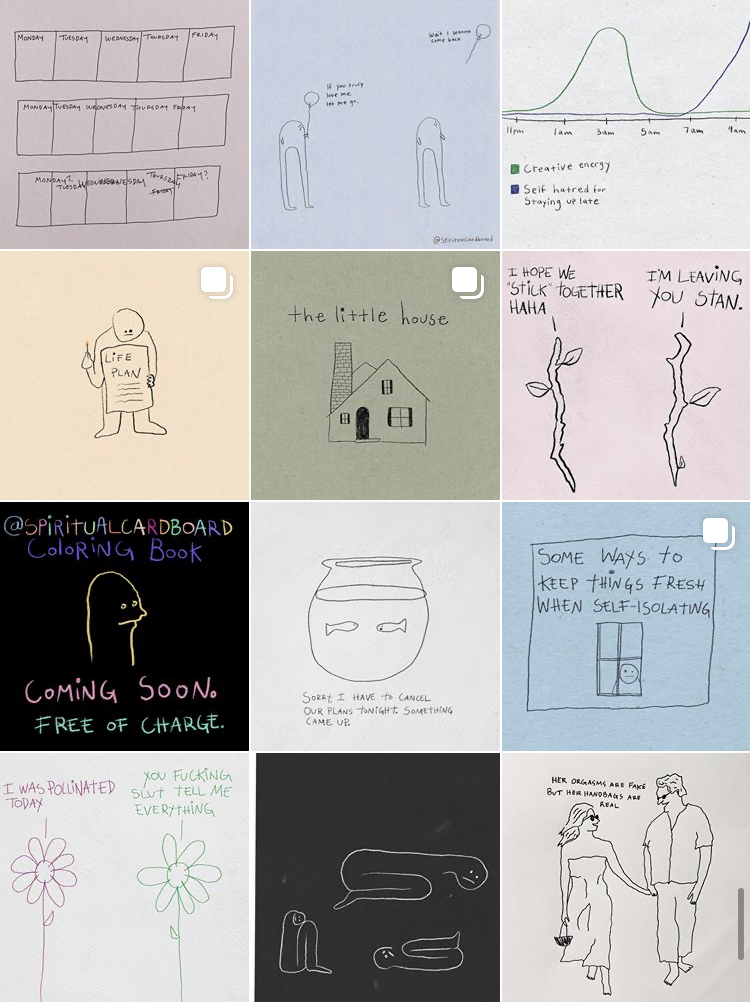 MONDAY TUESDAY WEDNESDAY THURSDAY FRIDAY
MONDAY TUESDAY WEDNESDAY THURSDAY FRIDAY
MONDAY? TUESDAY WEDNESDAY THURSDAY FRIDAY?
FRIDAY
If you truly
love me,
let me go.
Wait I wanna
come back
@spiritualcardboard
11pm 1am 3am 5am 7am 9am
Creative energy
Self hatred for
Staying up late
LIFE
PLAN
the little house
I HOPE WE
"STICK" TOGETHER
HAHA
I'M LEAVING
YOU STAN.
@SPIRITUALCARDBOARD
COLORING BOOK
COMING SOON.
FREE OF CHARGE.
SORRY, I HAVE TO CANCEL
OUR PLANS TONIGHT. SOMETHING
CAME UP.
SOME WAYS TO
KEEP THINGS FRESH
WHEN SELF-ISOLATING
I WAS POLLINATED
TODAY
YOU FUCKING
SLUT TELL ME
EVERYTHING
HER ORGASMS ARE FAKE
BUT HER HANDBAGS ARE
REAL